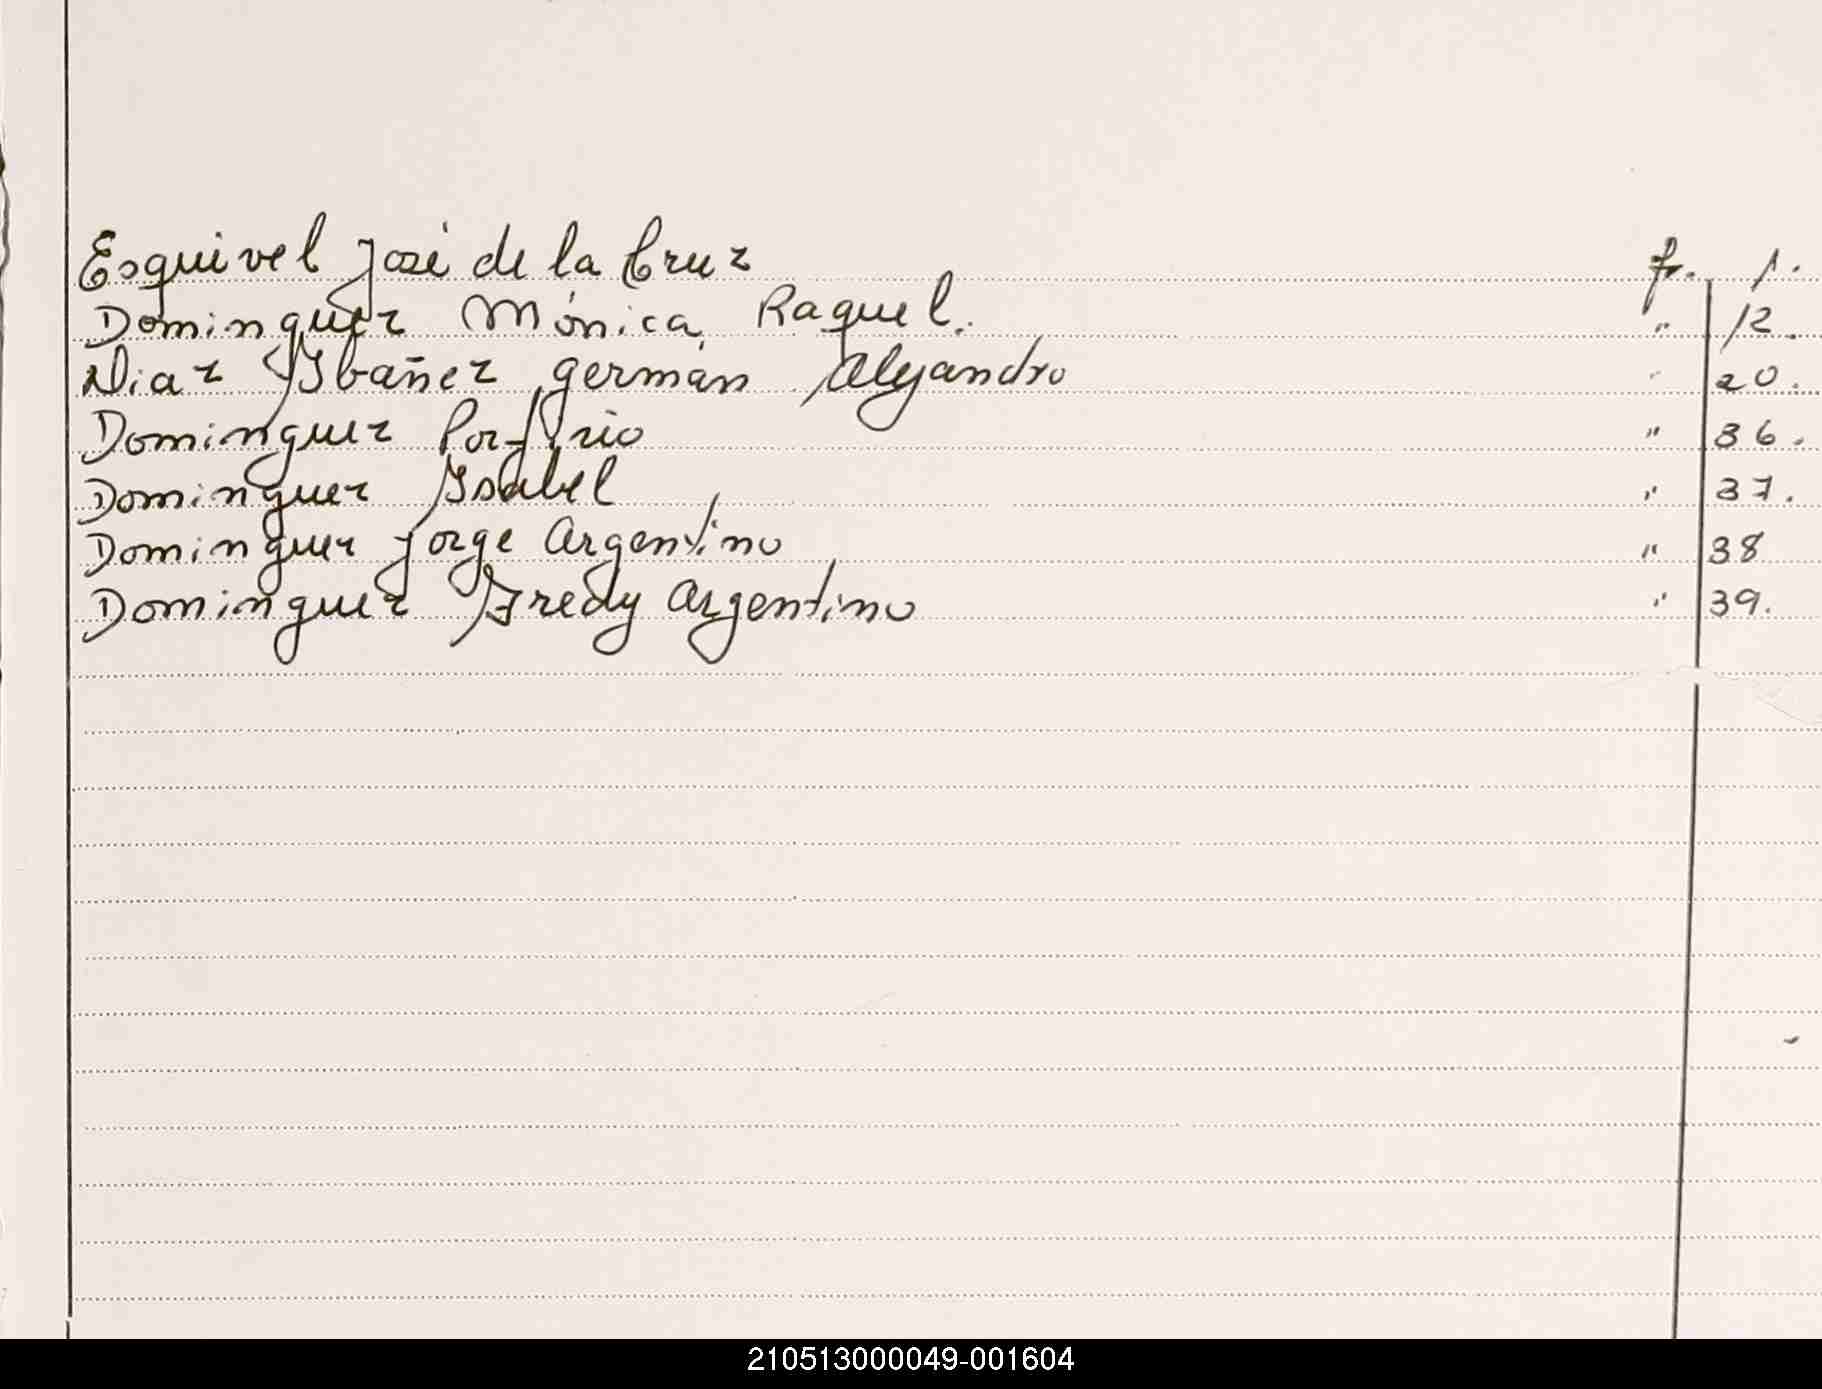 Esquivel José de la Cruz fr. 1.
Dominguez Mónica Raquel. " 12.
Diaz Ybañez germán Alejandro " 20.
Dominguez Porfirio " 36.
Dominguez Ysabel " 37.
Dominguez Jorge Argentino " 38
Dominguez Fredy Argentino " 39.
210513000049-001604